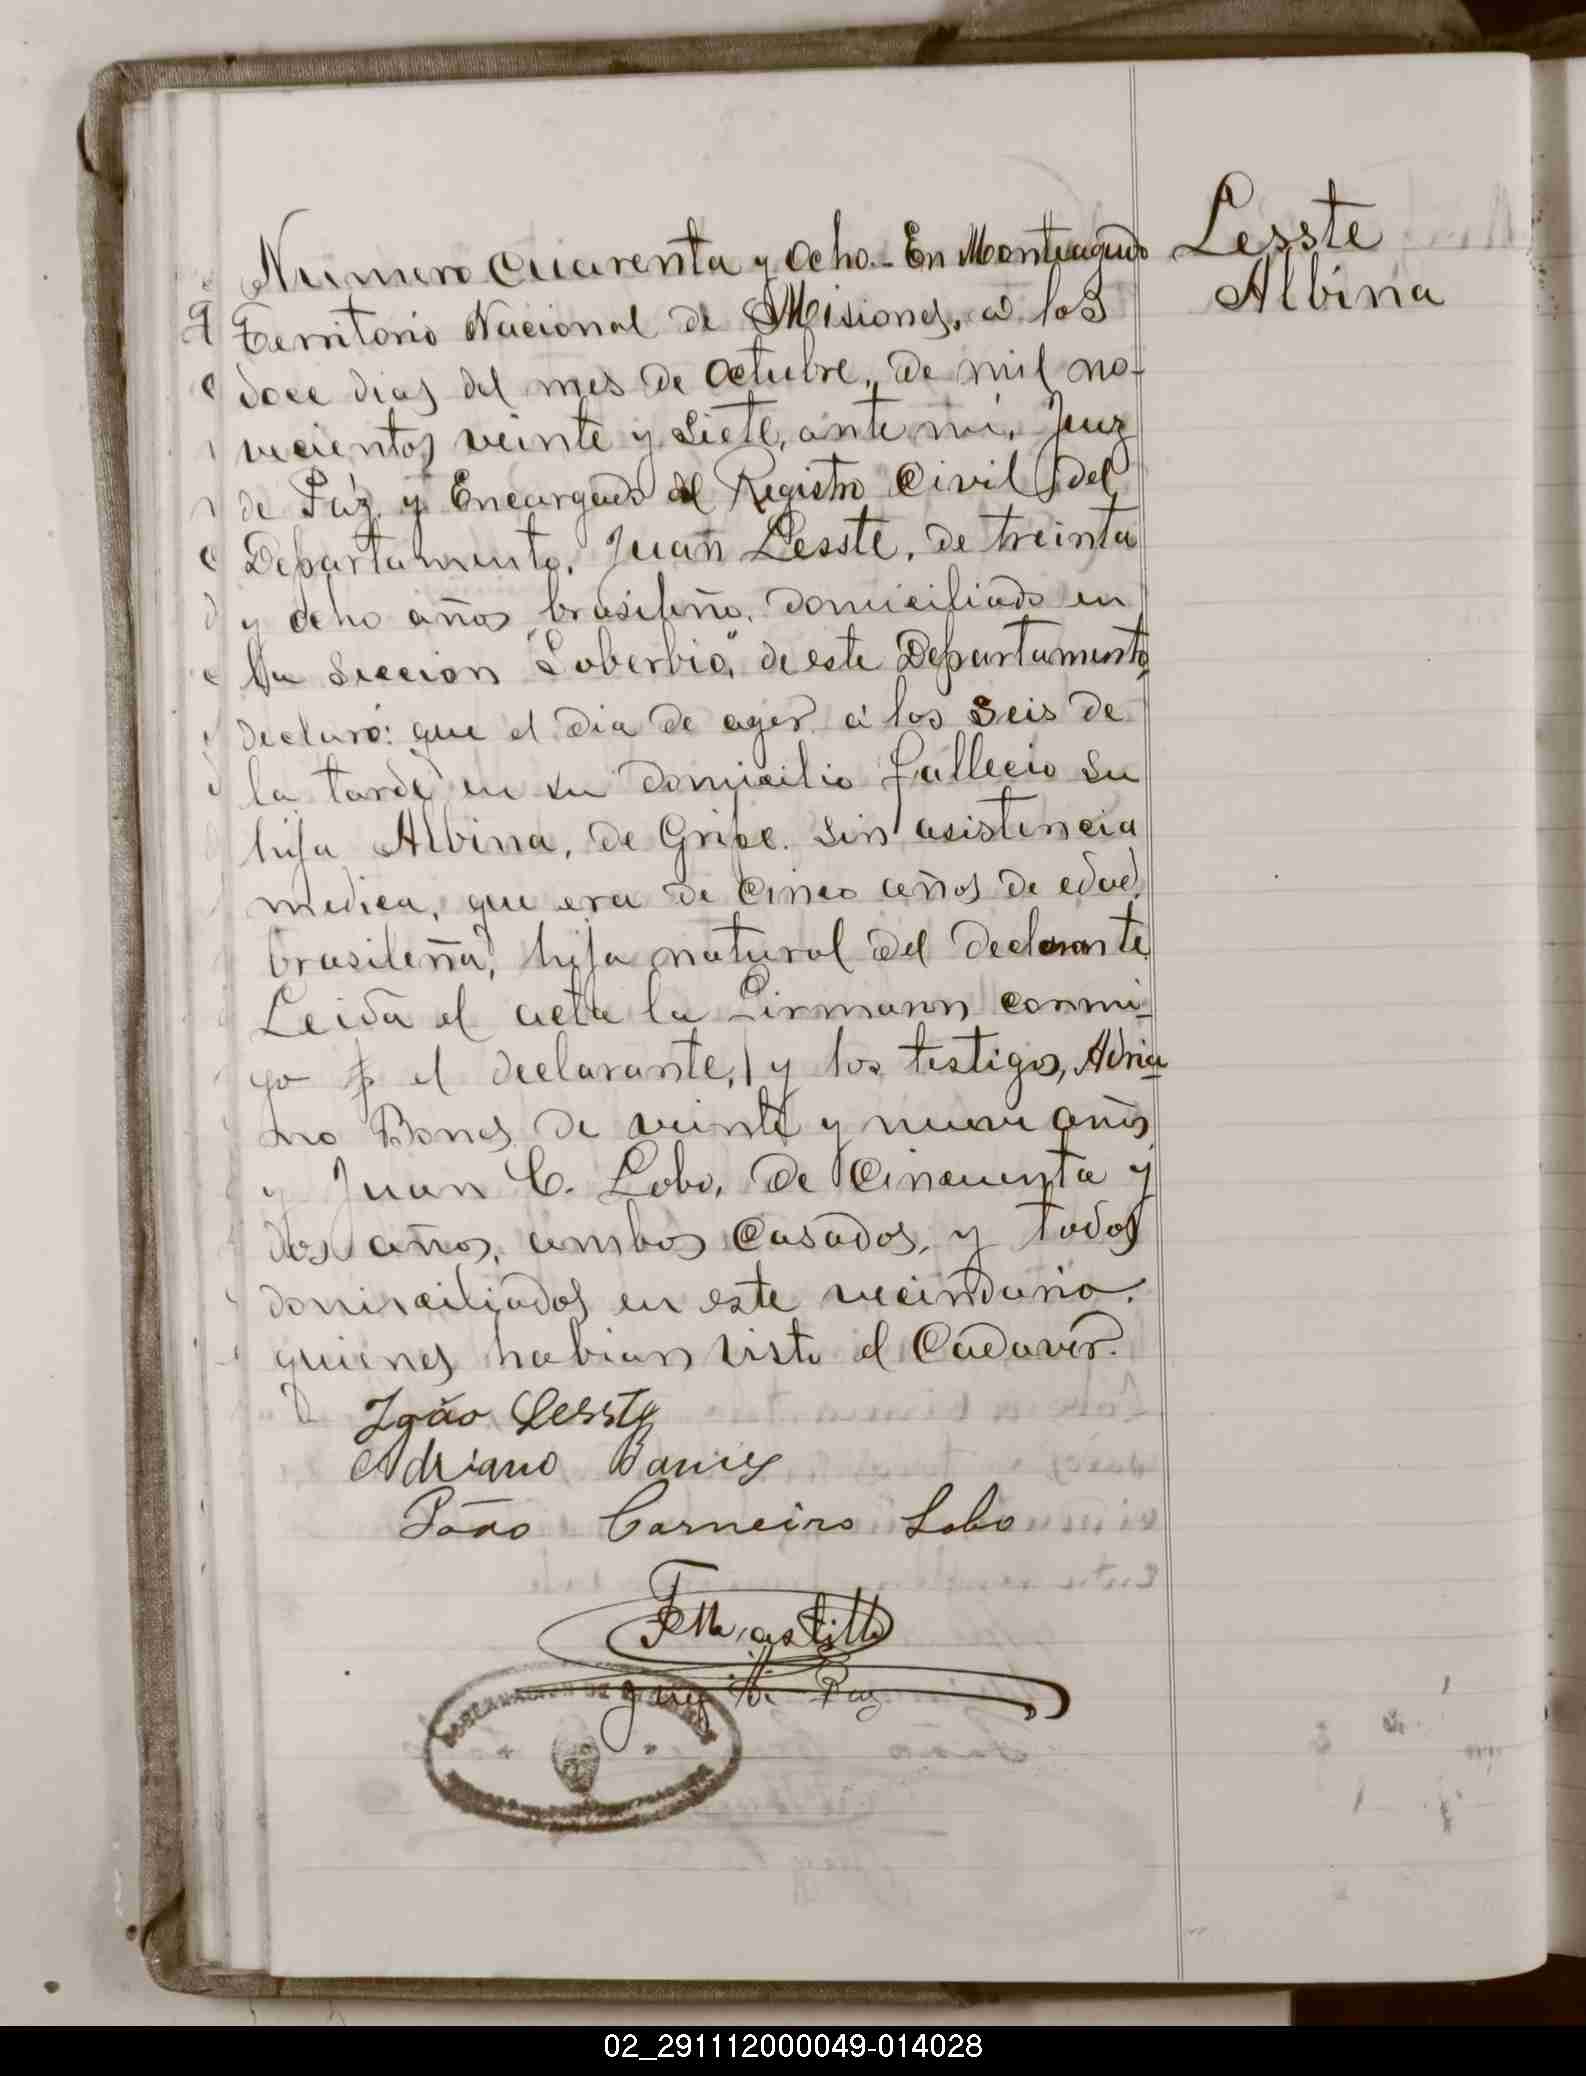 Lesste
Albina
Numero Cuarenta y Ocho.- En Monteagudo
Territorio Nacional de Misiones, a los
doce dias del mes de Octubre, de mil no-
vecientos veinte y siete, ante mi, Juez
de Páz y Encargado del Registro Civil del
Departamento, Juan Lesste, de treinta
y ocho años brasileño, domiciliado en
la Seccion "Soberbio", de este Departamento,
declaró: que el dia de ayer á los seis de
la tarde en su domicilio fallecio su
hija Albina, de Gripe. sin asistencia
medica, que era de Cinco años de edad,
brasileña, hija natural del declarante
Leida el acta la firmaron conmi-
go el declarante, y los testigos, Adria-
no Bones de veinte y nueve años
y Juan C. Lobo, de Cincuenta y
dos años, ambos Casados, y todos
domiciliados en este vecindario.
quienes habian visto el Cadaver.
João Lesste
Adriano
João Carneiro Lobo
Castillo
Juez de Paz
02_291112000049-014028